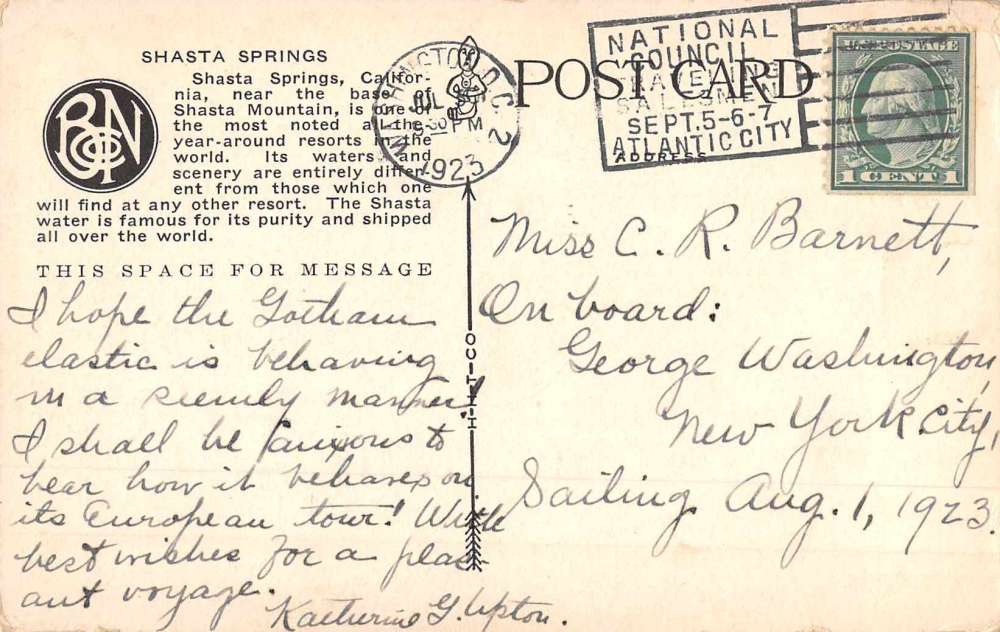 SHASTA SPRINGS
Shasta Springs, Califor-
nia, near the base of
Shasta Mountain, is one of
the most noted all-the-
year-around resorts in the
world. Its waters and
scenery are entirely differ-
ent from those which one
will find at any other resort. The Shasta
water is famous for its purity and shipped
all over the world.
THIS SPACE FOR MESSAGE
I hope the Gotham
elastic is behaving
in a seemly manner!
I shall be anxious to
hear how it behaves on
its European tour! With
best wishes for a pleas-
ant voyage.
Katherine G. Upton.
WASHINGTON, D.C. 2
JUL
PM
1923
H-H-T-CO
POST CARD
NATIONAL
COUNCIL
TRAVELING
SALESMEN
SEPT. 5-6-7
ATLANTIC CITY
ADDRESS
U.S. POSTAGE
1 CENT 1
Miss C. R. Barnett,
On board:
George Washington,
New York City,
Sailing Aug. 1, 1923.